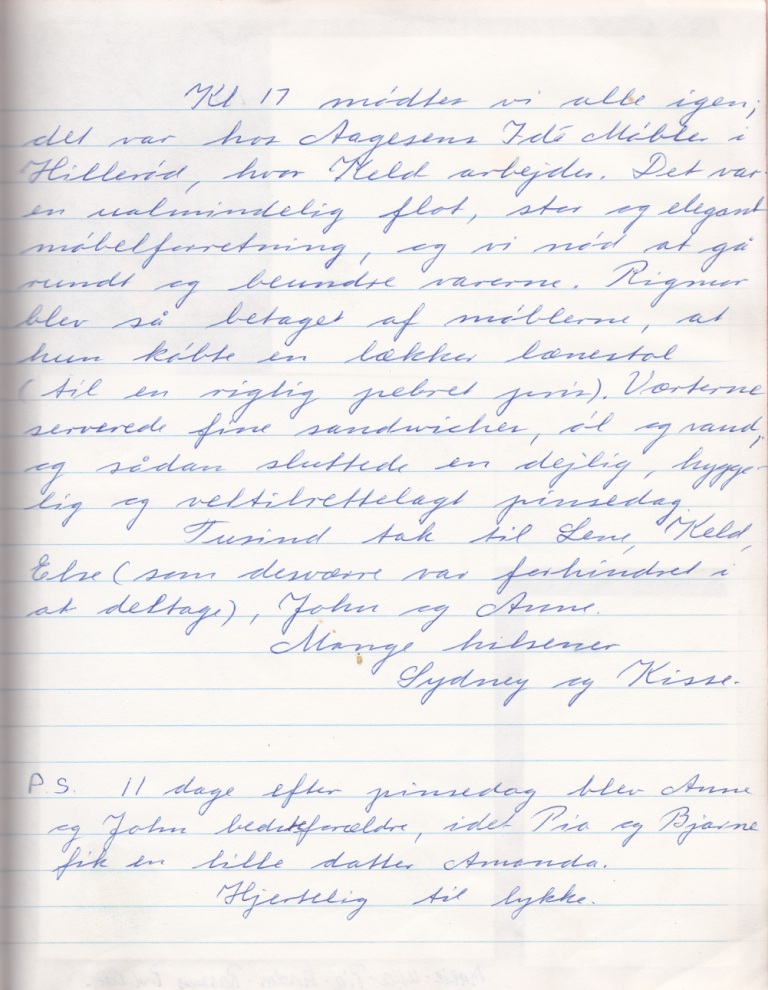 Kl 17 mødtes vi alle igen;
det var hos Aagesens Idé Møbler i
Hillerød, hvor Keld arbejder. Det var
en ualmindelig flot, stor og elegant
møbelforretning, og vi nød at gå
rundt og beundre varerne. Rigmor
blev så betaget af møblerne, at
hun købte en lækker lænestol
(til en rigtig pebret pris). Værterne
serverede fine sandwiches, øl og vand,
og sådan sluttede en dejlig, hygge-
lig og veltilrettelagt pinsedag.
Tusind tak til Lene, Keld,
Else (som desværre var forhindret i
at deltage), John og Anne.
Mange hilsener
Sydney og Kisse.
P.S. 11 dage efter pinsedag blev Anne
og John bedsteforældre, idet Pia og Bjarne
fik en lille datter Amanda.
Hjertelig til lykke.